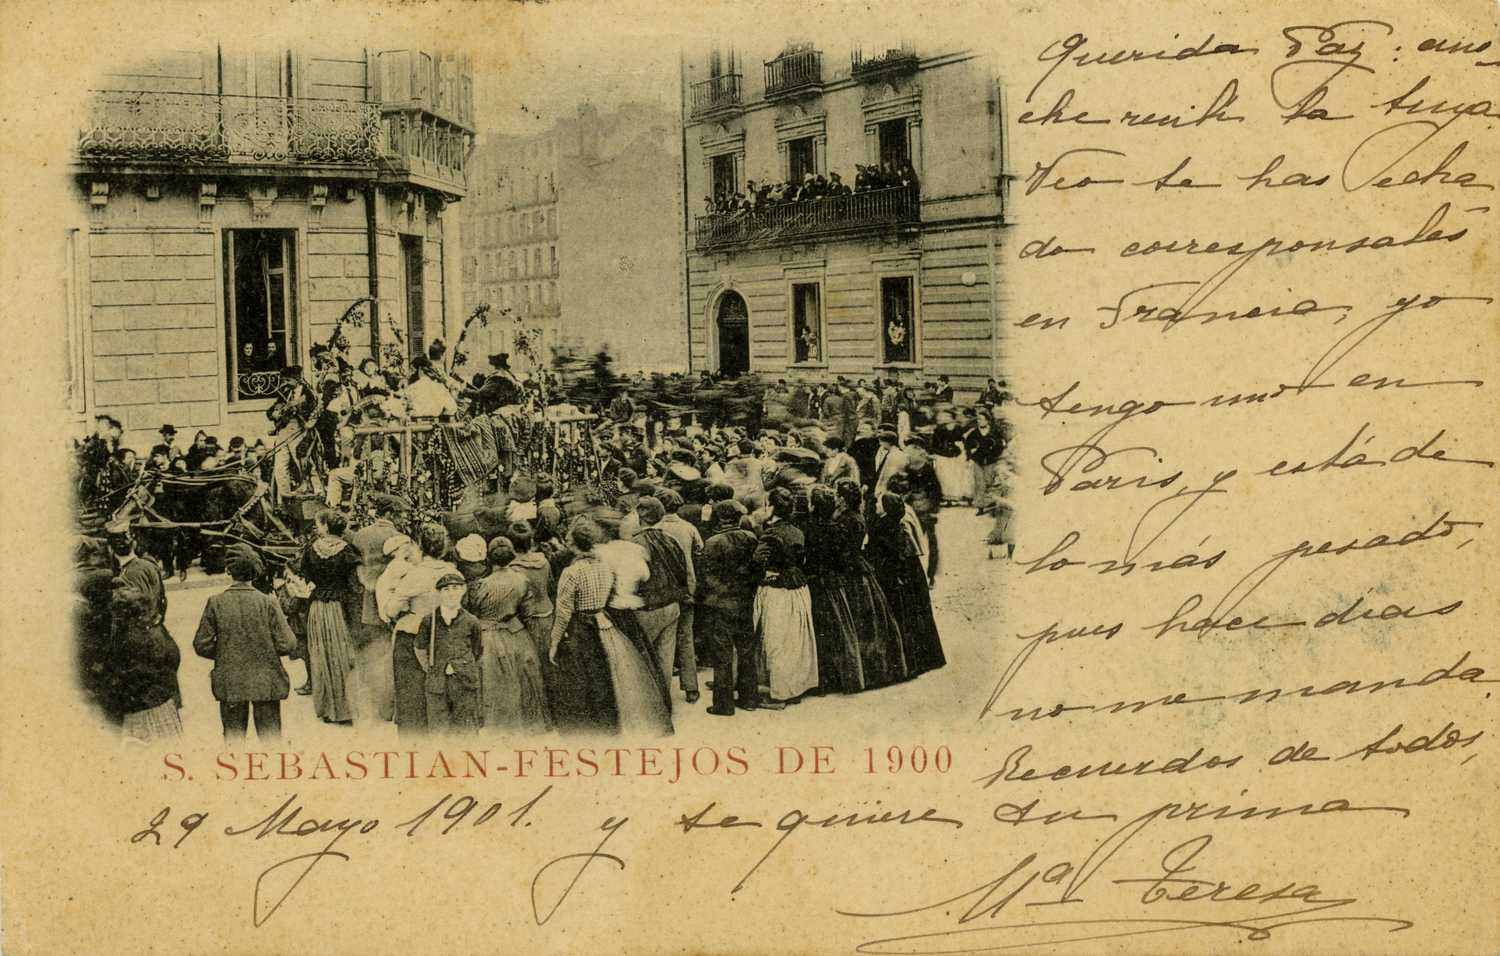 Querida Paz: ano-
che recibí la tuya.
Veo te has echa
do corresponsales
en Francia, yo
tengo uno en
Paris, y está de
lo más pesado,
pues hace dias
no me manda.
Recuerdos de todos,
S. SEBASTIAN-FESTEJOS DE 1900
29 Mayo 1901. y te quiere tu prima
Mª Teresa